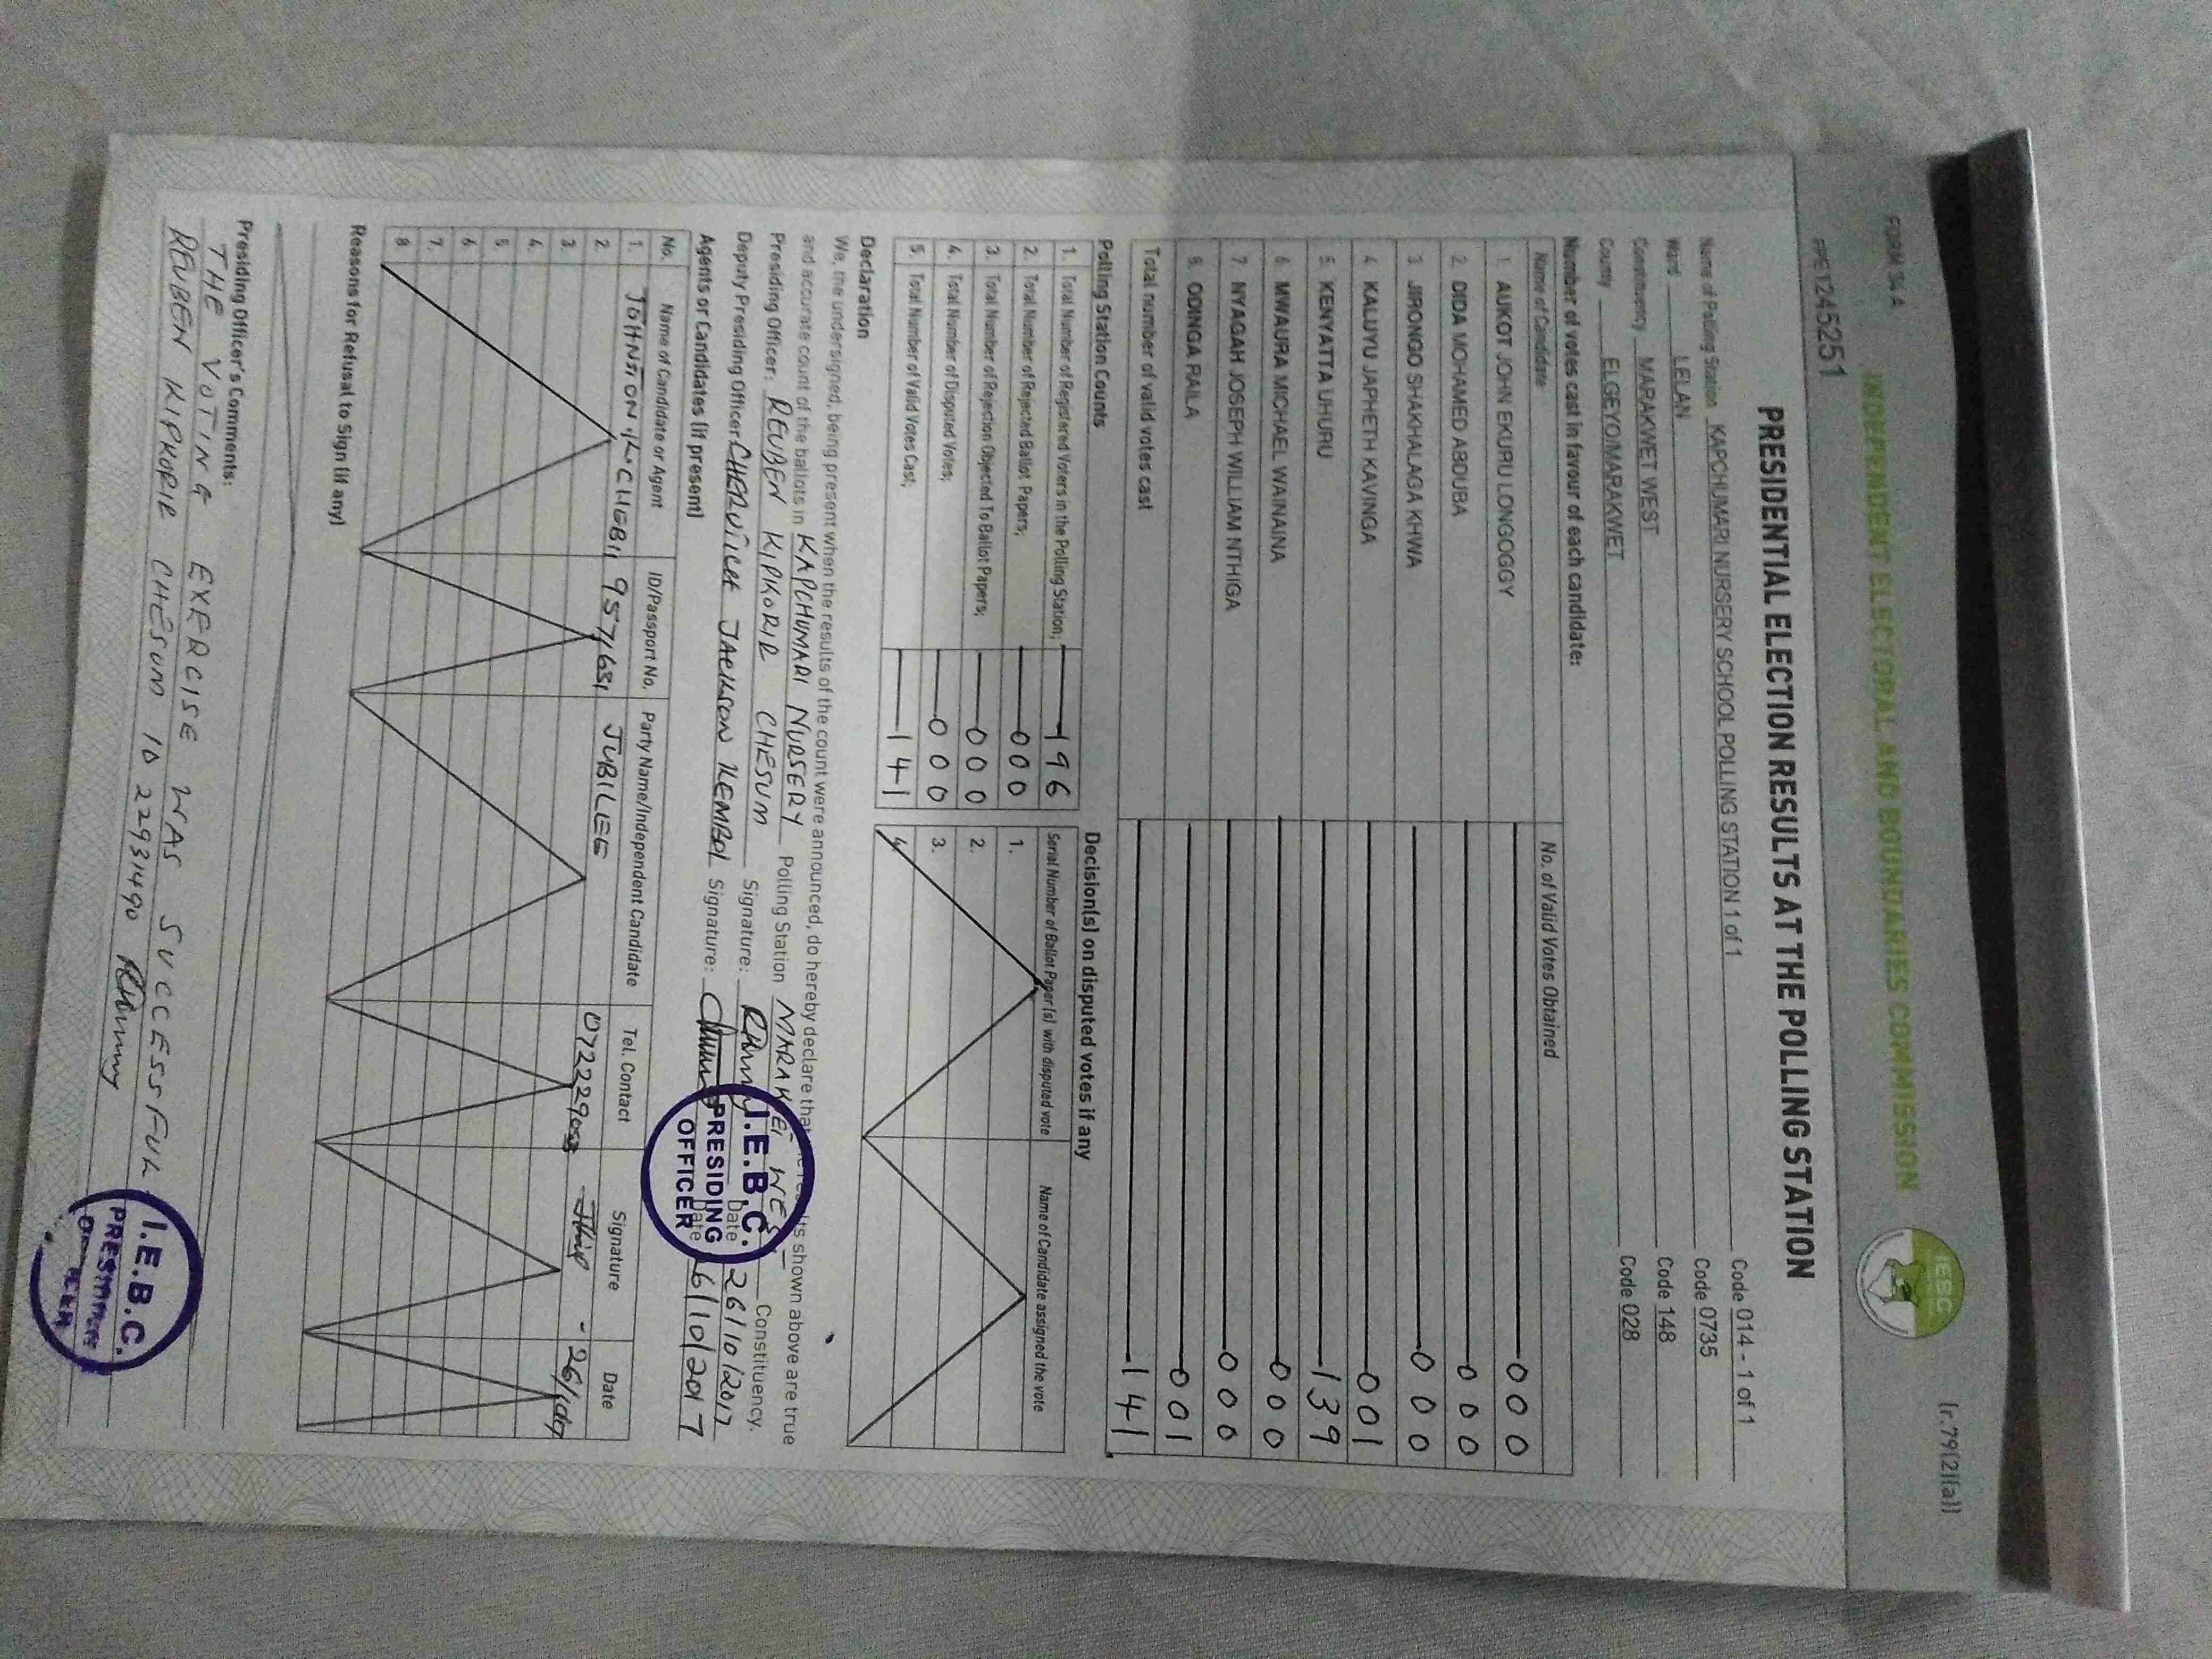 FORM 34 A
(r.79(2)(a))
INDEPENDENT ELECTORAL AND BOUNDARIES COMMISSION
IEBC
PRESIDENTIAL ELECTION RESULTS AT THE POLLING STATION
Name of Polling Station KAPCHUMARI NURSERY SCHOOL POLLING STATION 1 of 1 Code 014 - 1 of 1
Ward LELAN Code 0735
Constituency MARAKWET WEST Code 148
County ELGEYO/MARAKWET Code 028
Number of votes cast in favour of each candidate:
Name of Candidate No. of Valid Votes Obtained
1. AUKOT JOHN EKURU LONGOGGY 000
2. DIDA MOHAMED ABDUBA 000
3. JIRONGO SHAKHALAGA KHWA 000
4. KALUYU JAPHETH KAVINGA 001
5. KENYATTA UHURU 139
6. MWAURA MICHAEL WAINAINA 000
7. NYAGAH JOSEPH WILLIAM NTHIGA 000
8. ODINGA RAILA 001
Total number of valid votes cast 141
Polling Station Counts
1. Total Number of Registered Voters in the Polling Station; 196
2. Total Number of Rejected Ballot Papers; 000
3. Total Number of Rejection Objected To Ballot Papers; 000
4. Total Number of Disputed Votes; 000
5. Total Number of Valid Votes Cast; 141
Decision(s) on disputed votes if any
Serial Number of Ballot Paper(s) with disputed vote Name of Candidate assigned the vote
1.
2.
3.
4.
Declaration
We, the undersigned, being present when the results of the count were announced, do hereby declare that the results shown above are true
and accurate count of the ballots in KAPCHUMARI NURSERY Polling Station MARAKWET WEST Constituency.
Presiding Officer: REUBEN KIPKORIR CHESUM Signature: Date 26/10/2017
Deputy Presiding Officer: CHERUTICH JACKSON KEMBOI Signature: Date 26/10/2017
I.E.B.C.
PRESIDING
OFFICER
Agents or Candidates (if present)
No. Name of Candidate or Agent ID/Passport No. Party Name/Independent Candidate Tel. Contact Signature Date
1. JOHNSTON K. CHEBII 9571651 JUBILEE
2.
3.
4.
5.
6.
7.
8
Reasons for Refusal to Sign (if any)
Presiding Officer's Comments:
THE VOTING EXERCISE WAS SUCCESSFUL
REUBEN KIPKORIR CHESUM ID 22931490
I.E.B.C.
PRESIDING